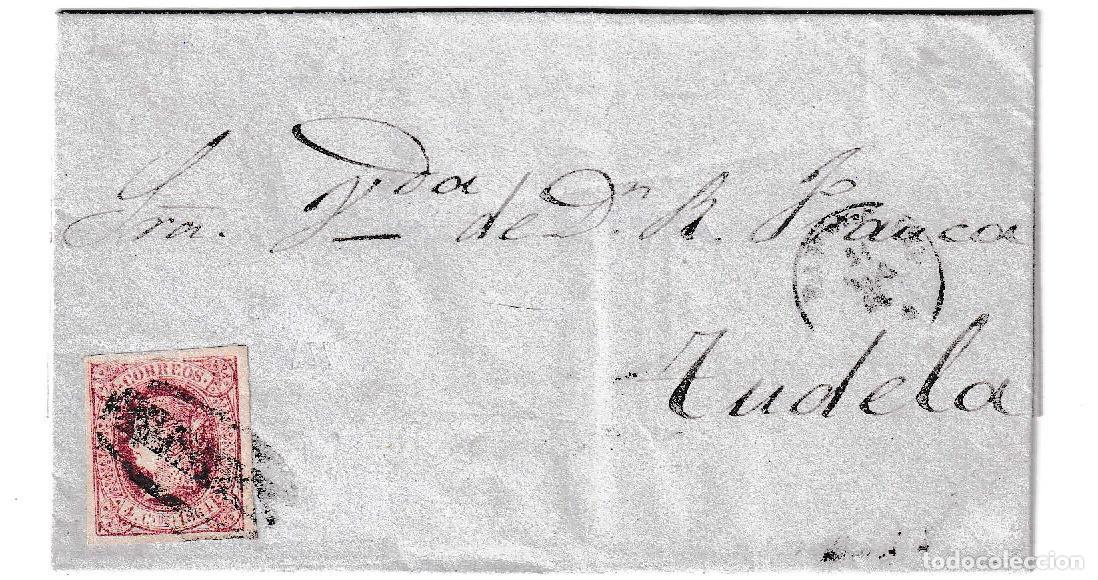 Sra. V.da de Dn. R. Franca
Tudela
CORREOS
todocoleccion